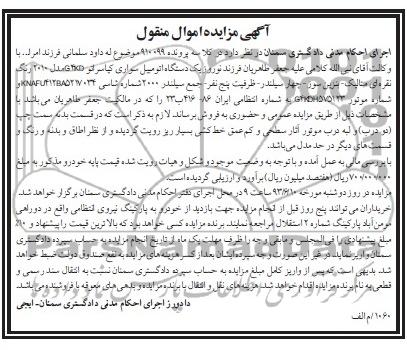 آگهی مزایده اموال منقول
اجرای احکام مدنی دادگستری سمنان در نظر دارد در کلاسه پرونده ۹۱۰۰۹۹ موضوع له داود سلمانی فرزند امراله با
وکالت آقای نبی الله کلامی علیه جعفر طاهریان فرزند نوروز یک دستگاه اتومبیل سواری کیاسراتو G4KD مدل ۲۰۱۰ رنگ
نقره ای متالیک- بنزین سوز- چهار سیلندر- ظرفیت پنج نفر- جمع سیلندر ۲۰۰۰ شماره شاسی KNAFU412BA5217034 و
شماره موتور G4KDH575123 به شماره انتظامی ایران ۸۶- ۴۱۶ب۳۳ را که در مالکیت جعفر طاهریان می باشد با
مشخصات ذیل از طریق مزایده عمومی و حضوری به فروش برساند. لازم به ذکر است که در قسمت بدنه سمت چپ
(دو درب) و لبه درب موتور آثار سطحی و کم عمق خط کشی بسیار ریز رویت گردیده و از نظر اطاق و بدنه و رنگ و
قسمت های دیگر در حد مدل می باشد.
با بررسی مالی به عمل آمده و با توجه به وضعیت موجود و شکل و هیات رویت شده قیمت پایه خودرو مذکور به مبلغ
۷۰۰/۰۰۰/۰۰۰ ریال (هفتصد میلیون ریال) برآورد و ارزیابی گردیده است.
مزایده در روز دوشنبه مورخه ۹۳/۶/۱۰ ساعت ۹ در محل اجرای دفتر احکام مدنی دادگستری سمنان برگزار خواهد شد.
خریداران می توانند پنج روز قبل از انجام مزایده جهت بازدید از خودرو به پارکینگ نیروی انتظامی واقع در دوراهی
مومن آباد پارکینگ شماره ۲ استقلال مراجعه نمایند. برنده مزایده کسی خواهد بود که بالاترین قیمت را پیشنهاد و ۱۰٪
مبلغ پیشنهادی را فی المجلس و مابقی وجه را ظرف مهلت یک ماه از تاریخ انجام مزایده به حساب سپرده دادگستری
سمنان واریز نماید، در غیر این صورت وجه سپرده ایشان بعد از کسر هزینه های مزایده به نفع صندوق دولت ضبط خواهد
شد. بدیهی است که پس از واریز کامل مبلغ مزایده به حساب سپرده دادگستری سمنان نسبت به انتقال سند رسمی و
قطعی به نام برنده مزایده اقدام خواهد شد. هزینه های نقل و انتقال با برنده مزایده و بدهی های معوقه با فروشنده می باشد.
دادورز اجرای احکام مدنی دادگستری سمنان- ایجی
۱۰۶۰/م الف